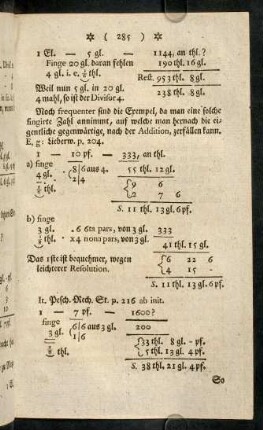 ✻ ( 285 ) ✻
1 El. — 5 gl. — 1144, an thl. ?
Finge 20 gl. daran fehlen 190 thl. 16 gl.
4 gl. i. e. 1/6 thl. Rest. 953 thl. 8 gl.
Weil nun 5 gl. in 20 gl. 238 thl. 8 gl.
4 mahl, so ist der Divisor 4.
Noch frequenter sind die Exempel, da man eine solche
fingirte Zahl annimmt, auf welche man hernach die ei-
gentliche gegenwärtige, nach der Addition, zerfällen kann.
E, g: Lieberw. p. 204.
1 — 10 pf. — 333, an thl.
a) finge 8 | 6 aus 4. 55 thl. 12 gl.
4 gl. 2 | 6
1/6 thl. { 9 6
2 7 6
S. 11 thl. 13 gl. 6 pf.
b) finge
3 gl. . 6 tens pars, von 3 gl. 333
1/8 thl. . x 4 nona pars, von 3 gl. 41 thl. 15 gl.
Das 1ste ist bequehmer, wegen { 6 22 6
leichterer Resolution. 4 15 -
S. 11 thl. 13 gl. 6 pf.
It. Pesch. Rech. St. p. 216 ab init.
1 — 7 pf. — 1600 ?
finge 6 | 6 aus 3 gl. 200
3 gl. 1 | 6
1/8 thl. { 33 thl. 8 gl. - pf.
5 thl. 13 gl. 4 pf.
S. 38 thl. 21 gl. 4 pf.
So